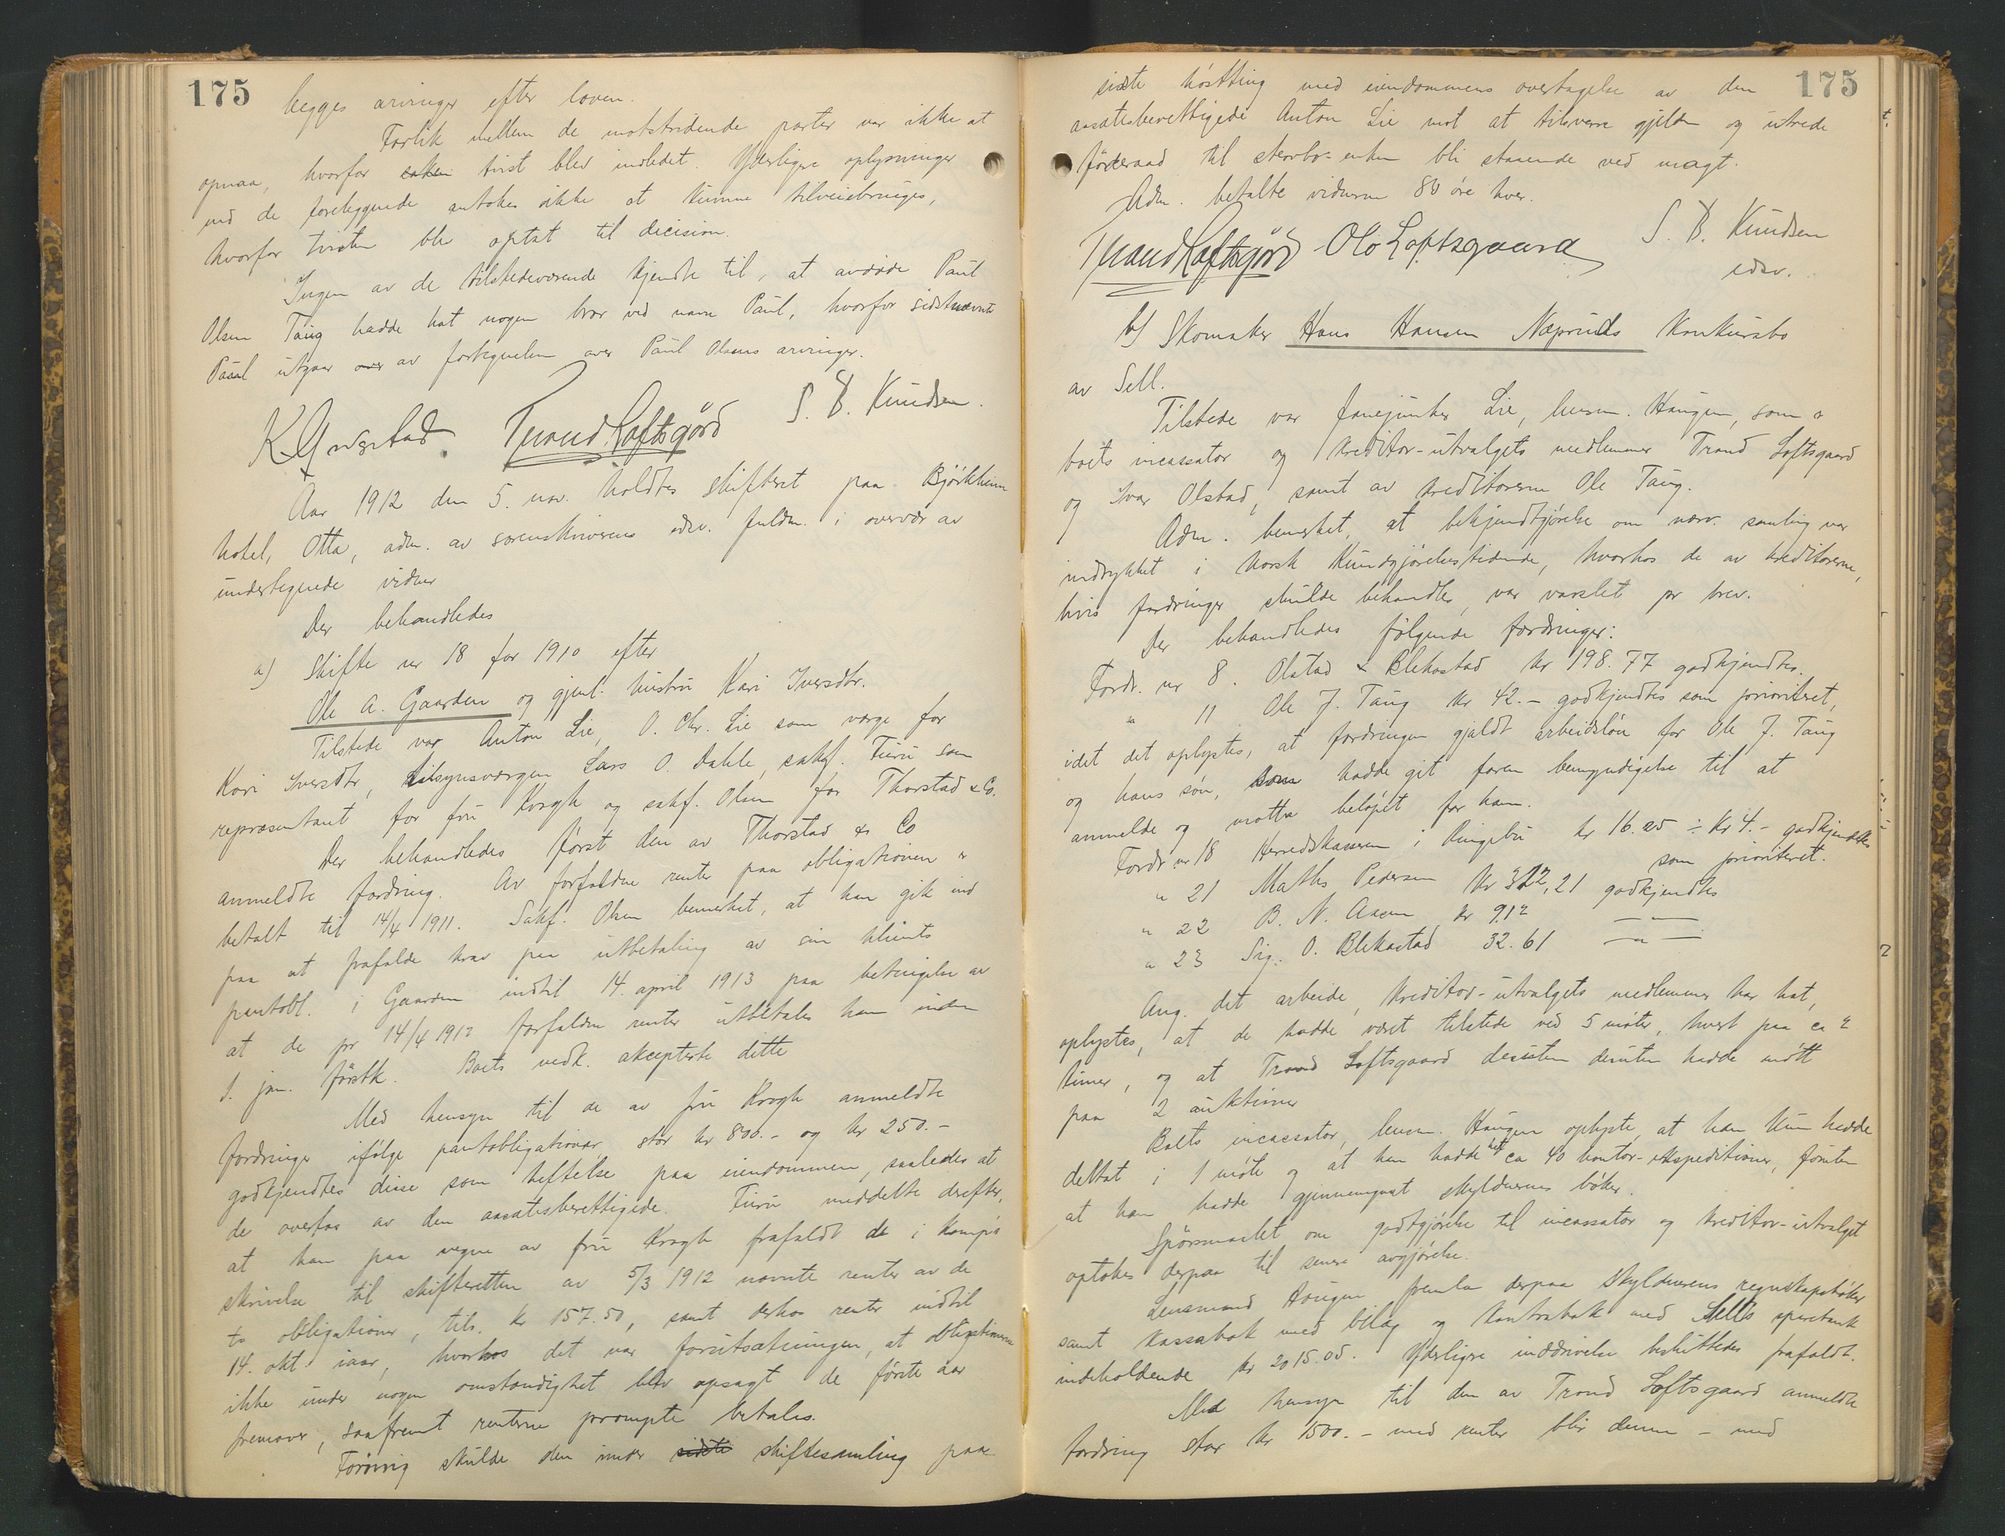 175
begges arvinger efter loven.
Forlik mellem de motstridende parter var ikke at
opnaa, hvorfor saken tvist blev indledet. Yderligere oplysninger
end de foreliggende antokes ikke at kunne tilveiebringes,
hvorfor tvisten blev optat til decision.
Ingen av de tilstedeværende kjendte til, at avdøde Paul
Olsen Taug hadde hat nogen bror ved navn Paul, hvorfor sidstnævnte
Paul utgaar over av fortegnelsen over Paul Olsens arvinger.
K. Yngstad. Trond Loftsgård S. B. Knudsen.
Aar 1912 den 5. nov. holdtes skifteret paa Bjørkheim
hotel, Otta, adm. av sorenskriverens edsv. fuldm. i overvær av
undertegnede vidner
Der behandledes
a) Skifte nr 18 for 1910 efter
Ole A. Gaarden og gjenl. hustru Kari Iversdtr.
Tilstede var Anton Lie, O. Chr. Lie som verge for
Kari Iversdtr, tilsynsvergen Lars O. Dahle, sakf. Furu som
repræsentant for fru Krogh og sakf. Olsen for Thorstad & Co.
Der behandledes først den av Thorstad & Co
anmeldte fordring. Av forfaldne renter paa obligationen er
betalt til 14/4 1911. Sakf. Olsen bemerket, at han gik ind
paa at frafalde krav paa utbetaling av sin klients
pantobl. i Gaarden indtil 14. april 1913 paa betingelse av
at de pr 14/4 1912 forfaldne renter utbetales ham inden
1. jan. førstk. Boets vedk. aksepterte dette
Med hensyn til de av fru Krogh anmeldte
fordringer ifølge pantobligationer, stor kr 800.- og kr 250.-
godkjendtes disse som heftelse paa eiendommen, saaledes at
de overtas av den aasætesberettigede. Furu meddelte derefter,
at han paa vegne av fru Krogh frafaldt de i hans
skrivelse til skifteretten av 5/3 1912 nævnte renter av de
to obligationer, tils. kr 157.50, samt derhos renter indtil
14. okt. iaar, hvorhos det var forutsætningen, at obligationerne
ikke under nogen omstændighet blev opsagt de første aar
fremover, saafremt renterne prompte betales.
Forøvrig skulde den under sidste skiftesamling paa

175
sidste høstting med eiendommens overtagelse av den
aasætesberettigede Anton Lie mot at tilsvare gjelden og utrede
føderaad til stervbo-enken bli staaende ved magt.
Adm. betalte vidnerne 80 øre hver.
Trond Loftsgård Ole Loftsgaard S. B. Knudsen
edsv.
b) Skomaker Hans Hansen Næpruds konkursbo
av Sell.
Tilstede var fanejunker Lie, lensm. Haugen, som er
boets incassator og kreditor-utvalgets medlemmer Trond Loftsgaard
og Ivar Olstad, samt av kreditorerne Ole Taug.
Adm. bemerket, at bekjendtgjørelse om nærv. samling var
indrykket i Norsk Kundgjørelsestidende, hvorhos de av kreditorerne,
hvis fordringer skulde behandles, var varslet pr brev.
Der behandledes følgende fordringer:
Fordr. nr 8. Olstad & Blekastad kr 198.77 godkjendtes.
" 11 Ole J. Taug kr 42.- godkjendtes som prioritert,
idet det oplystes, at fordringen gjaldt arbeidsløn for Ole J. Taug
og hans søn, som hadde git faren bemyndigelse til at
anmelde og motta beløpet for ham.
Fordr. nr 18 Herredskassereren i Ringebu kr 16.25 ÷ kr 4.- godkjendtes
som prioritert.
" 21 Maths Pedersen kr 322,21 godkjendtes
" 22 B. N. Aasen kr 9.12 —"—
" 23 Sig. O. Blekastad 32.61 —"—
Ang. det arbeide, kreditor-utvalgets medlemmer har hat,
oplystes, at de hadde været tilstede ved 5 møter, hvert paa ca 2
timer, og at Trond Loftsgaard desuten desuten hadde møtt
paa 2 auktioner
Boets incassator, lensm. Haugen oplyste, at han kun hadde
deltat i 1 møte og at han hadde hat ca 40 kontor-ekspeditioner, foruten
at han hadde gjennemgaat skyldnerens bøker.
Spørsmaalet om godtgjørelse til incassator og kreditor-utvalget
optokes derpaa til senere avgjørelse.
Lensmand Haugen fremla derpaa skyldnerens regnskapsbøker
samt kassabok med bilag og kontrabok med Sells sparebank
indeholdende kr 2015.05. Yderligere inddrivelse besluttedes frafaldt.
Med hensyn til den av Trond Loftsgaard anmeldte
fordring stor kr 1500.- med renter blir denne - med